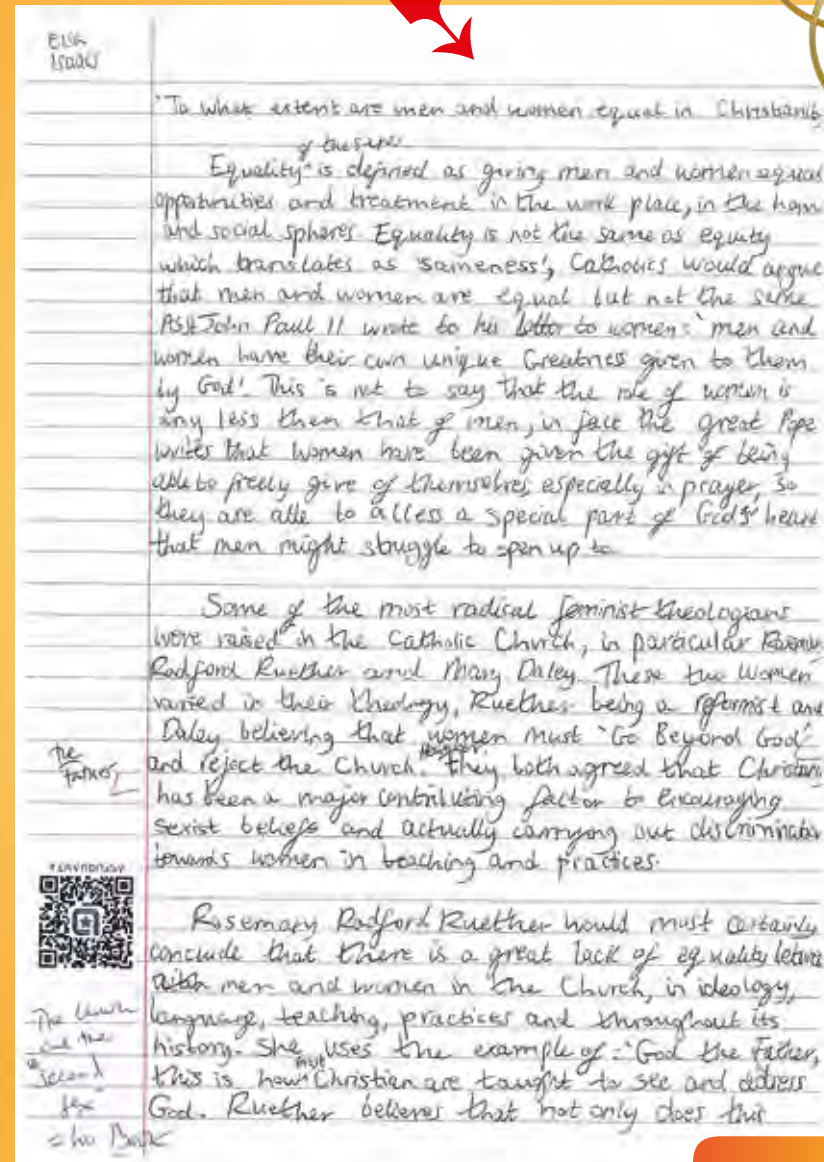 Ella
Isaacs
'To what extent are men and women equal in Christianity
of the sexes
Equality ^ is defined as giving men and women equal
oppotunities and treatment in the work place, in the home
and social spheres. Equality is not the same as equity
which translates as 'sameness', Catholics would argue
that men and women are equal but not the same
As St John Paul II wrote to his letter to womens 'men and
women have their own unique Greatness given to them
by God'. This is not to say that the role of women is
any less then that of men, in fact the great Pope
writes that women have been given the gift of being
able to freely give of themselves, especially in prayer, so
they are able to access a special part of God's heart
that men might struggle to open up to
Some of the most radical feminist theologians
were raised in the Catholic Church, in particular
Radford Ruether and Mary Daley. These two women
varied in their theology, Ruether being a reformist and
Daley believing that women must 'Go Beyond God'
the Father
and reject the Church. They both agreed that Christian
has been a major contributing factor to encouraging
sexist beliefs and actually carrying out discriminatio
towards women in teaching and practices.
Rosemary Radford Ruether would most certainly
conclude that there is a great lack of equality
men and women in the Church, in ideology,
The Church
and the
"second
sex"
language, teaching, practices and throughout its
history. She uses the example of 'God the Father,
this is how Christian are taught to see and address
God. Ruether believes that not only does this